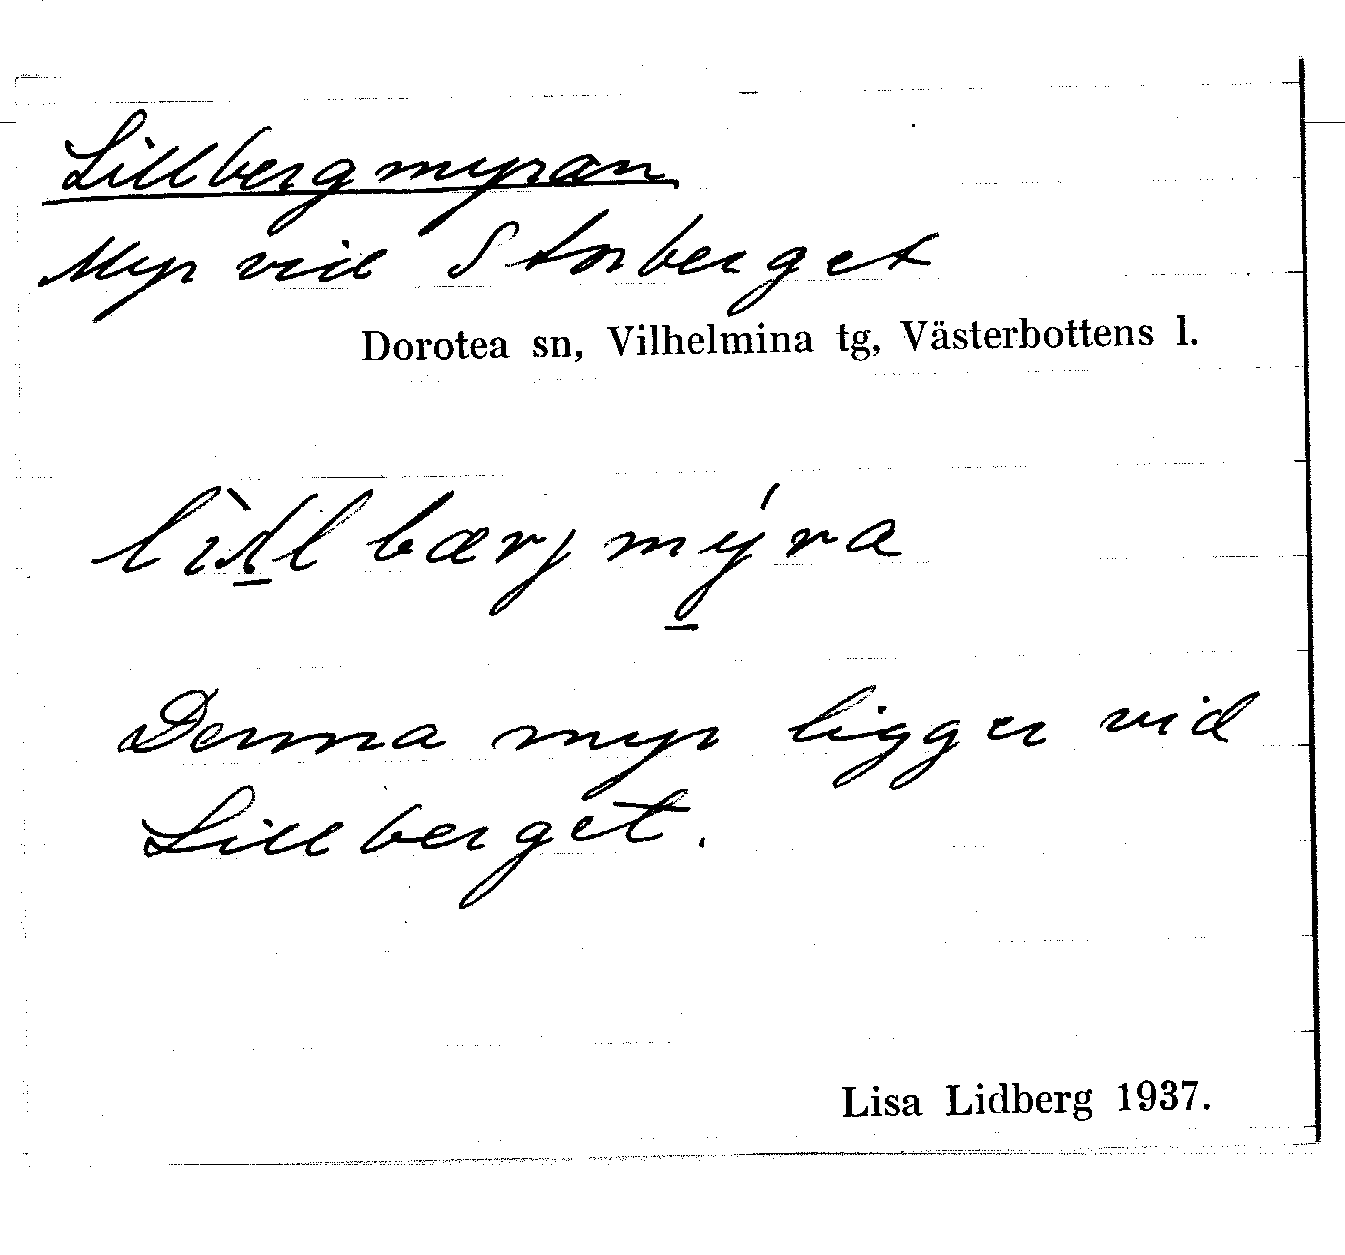 Lillbergmyran
Myr vid Storberget
Dorotea sn, Vilhelmina tg, Västerbottens l.
bærjmýra
Denna myr ligger vid
Lillberget.
Lisa Lidberg 1937.